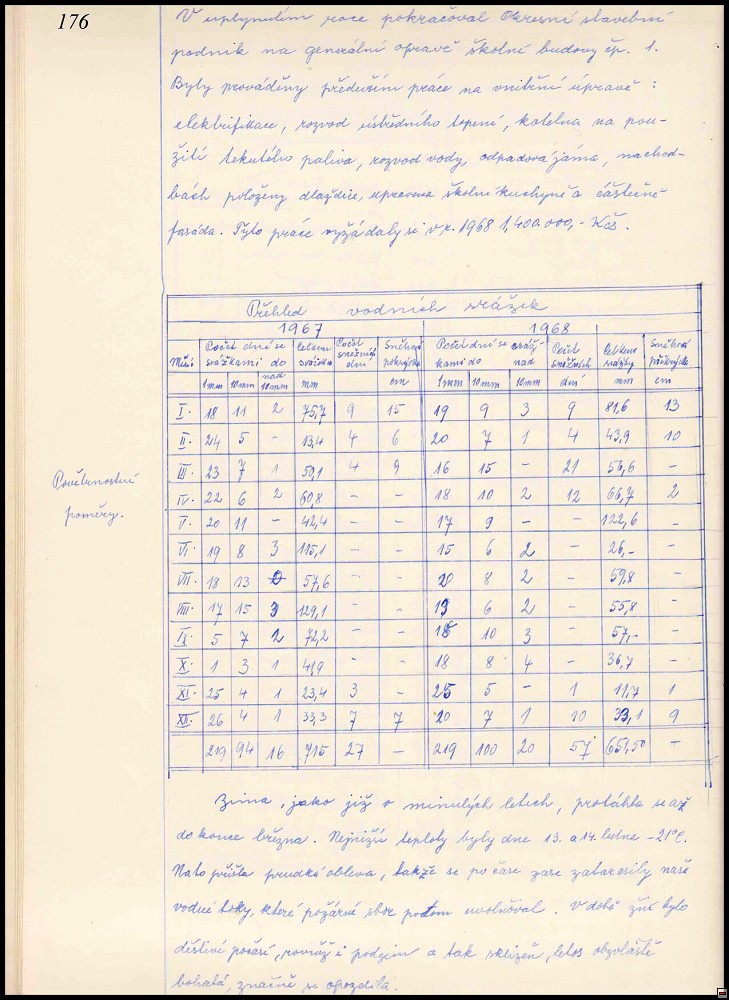 176
V uplynulém roce pokračoval Okresní stavební
podnik na generální opravě školní budovy čp. 1.
Byly prováděny především práce na vnitřní úpravě :
elektrifikace, rozvod ústředního topení, kotelna na pou-
žití tekutého paliva, rozvod vody, odpadová jáma, na chod-
bách položeny dlaždice, upravena školní kuchyně a částečně
fasáda. Tyto práce vyžádaly si v r. 1968 1,400.000,- Kčs.
Přehled vodních srážek
1967 1968
Měsí Počet dné se srážkami do Celkem srážek Počet sněžných dní Sněhová pokrývka Počet dní se sráž- kami do nad Počet sněžných dní Celkem srážky Sněhová pokrývka
1mm 10mm nad 10mm mm cm 1mm 10mm 10mm dní mm cm
I. 18 11 2 75,7 9 15 19 9 3 9 81,6 13
II. 24 5 - 13,4 4 6 20 7 1 4 43,9 10
III. 23 7 1 59,1 4 9 16 15 - 21 56,6 -
IV. 22 6 2 60,8 - - 18 10 2 12 66,7 2
V. 20 11 - 42,4 - - 17 9 - - 122,6 -
VI. 19 8 3 115,1 - - 15 6 2 - 26,- -
VII. 18 13 0 57,6 - - 20 8 2 - 59,8 -
VIII. 17 15 3 129,1 - - 19 6 2 - 55,8 -
IX. 5 7 2 72,2 - - 18 10 3 - 57,- -
X. 1 3 1 41,9 - - 18 8 4 - 36,7 -
XI. 25 4 1 23,4 3 - 25 5 - 1 11,7 1
XII. 26 4 1 33,3 7 7 20 7 1 10 33,1 9
219 94 16 715 27 - 219 100 20 57 651,50 -
Povětrnostní
poměry.
Zima, jako již v minulých letech, protáhla se až
do konce března. Nejnižší teploty byly dne 13. a 14. ledna -21°C.
Na to přišla prudká obleva, takže se po čase zase zatarasily naše
vodní toky, které požární sbor potom uvolňoval. V době žní bylo
deštivé počasí, rovněž i podzim a tak sklizeň, letos obzvláště
bohatá, značně se opozdila.